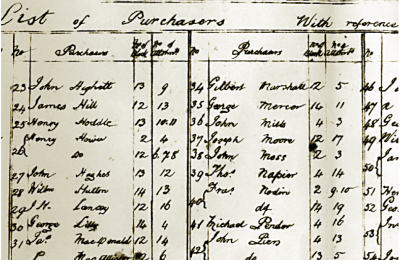 List of Purchasers With reference
No Purchasers No of Block No of Allotmt No Purchasers No of Block No of Allotmt No
23 John Highett 13 9 34 Gilbert Marshall 12 5 46
24 James Hill 12 13 35 George Mercer 14 11 47
25 Henry Hoddle 13 10.11 36 John Mills 4 3 48
Henry Howie 2 4 37 Joseph Moore 12 17 49
26 Do 12 6.7.8 38 John Moss 2 3
27 John Hughes 13 12 39 Thos Napier 4 14 50
28 Willm Hutton 14 13 Fras Nodin 2 9.10 51
29 J.H. Lancey 12 16 40 do 14 19 52
30 George Lilly 14 4 41 Michael Pender 4 16
31 Jas MacDonald 12 14 John Piers 4 13 53
6 42 do 13 5 54